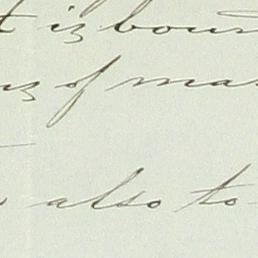 t is boun
of mas
also to